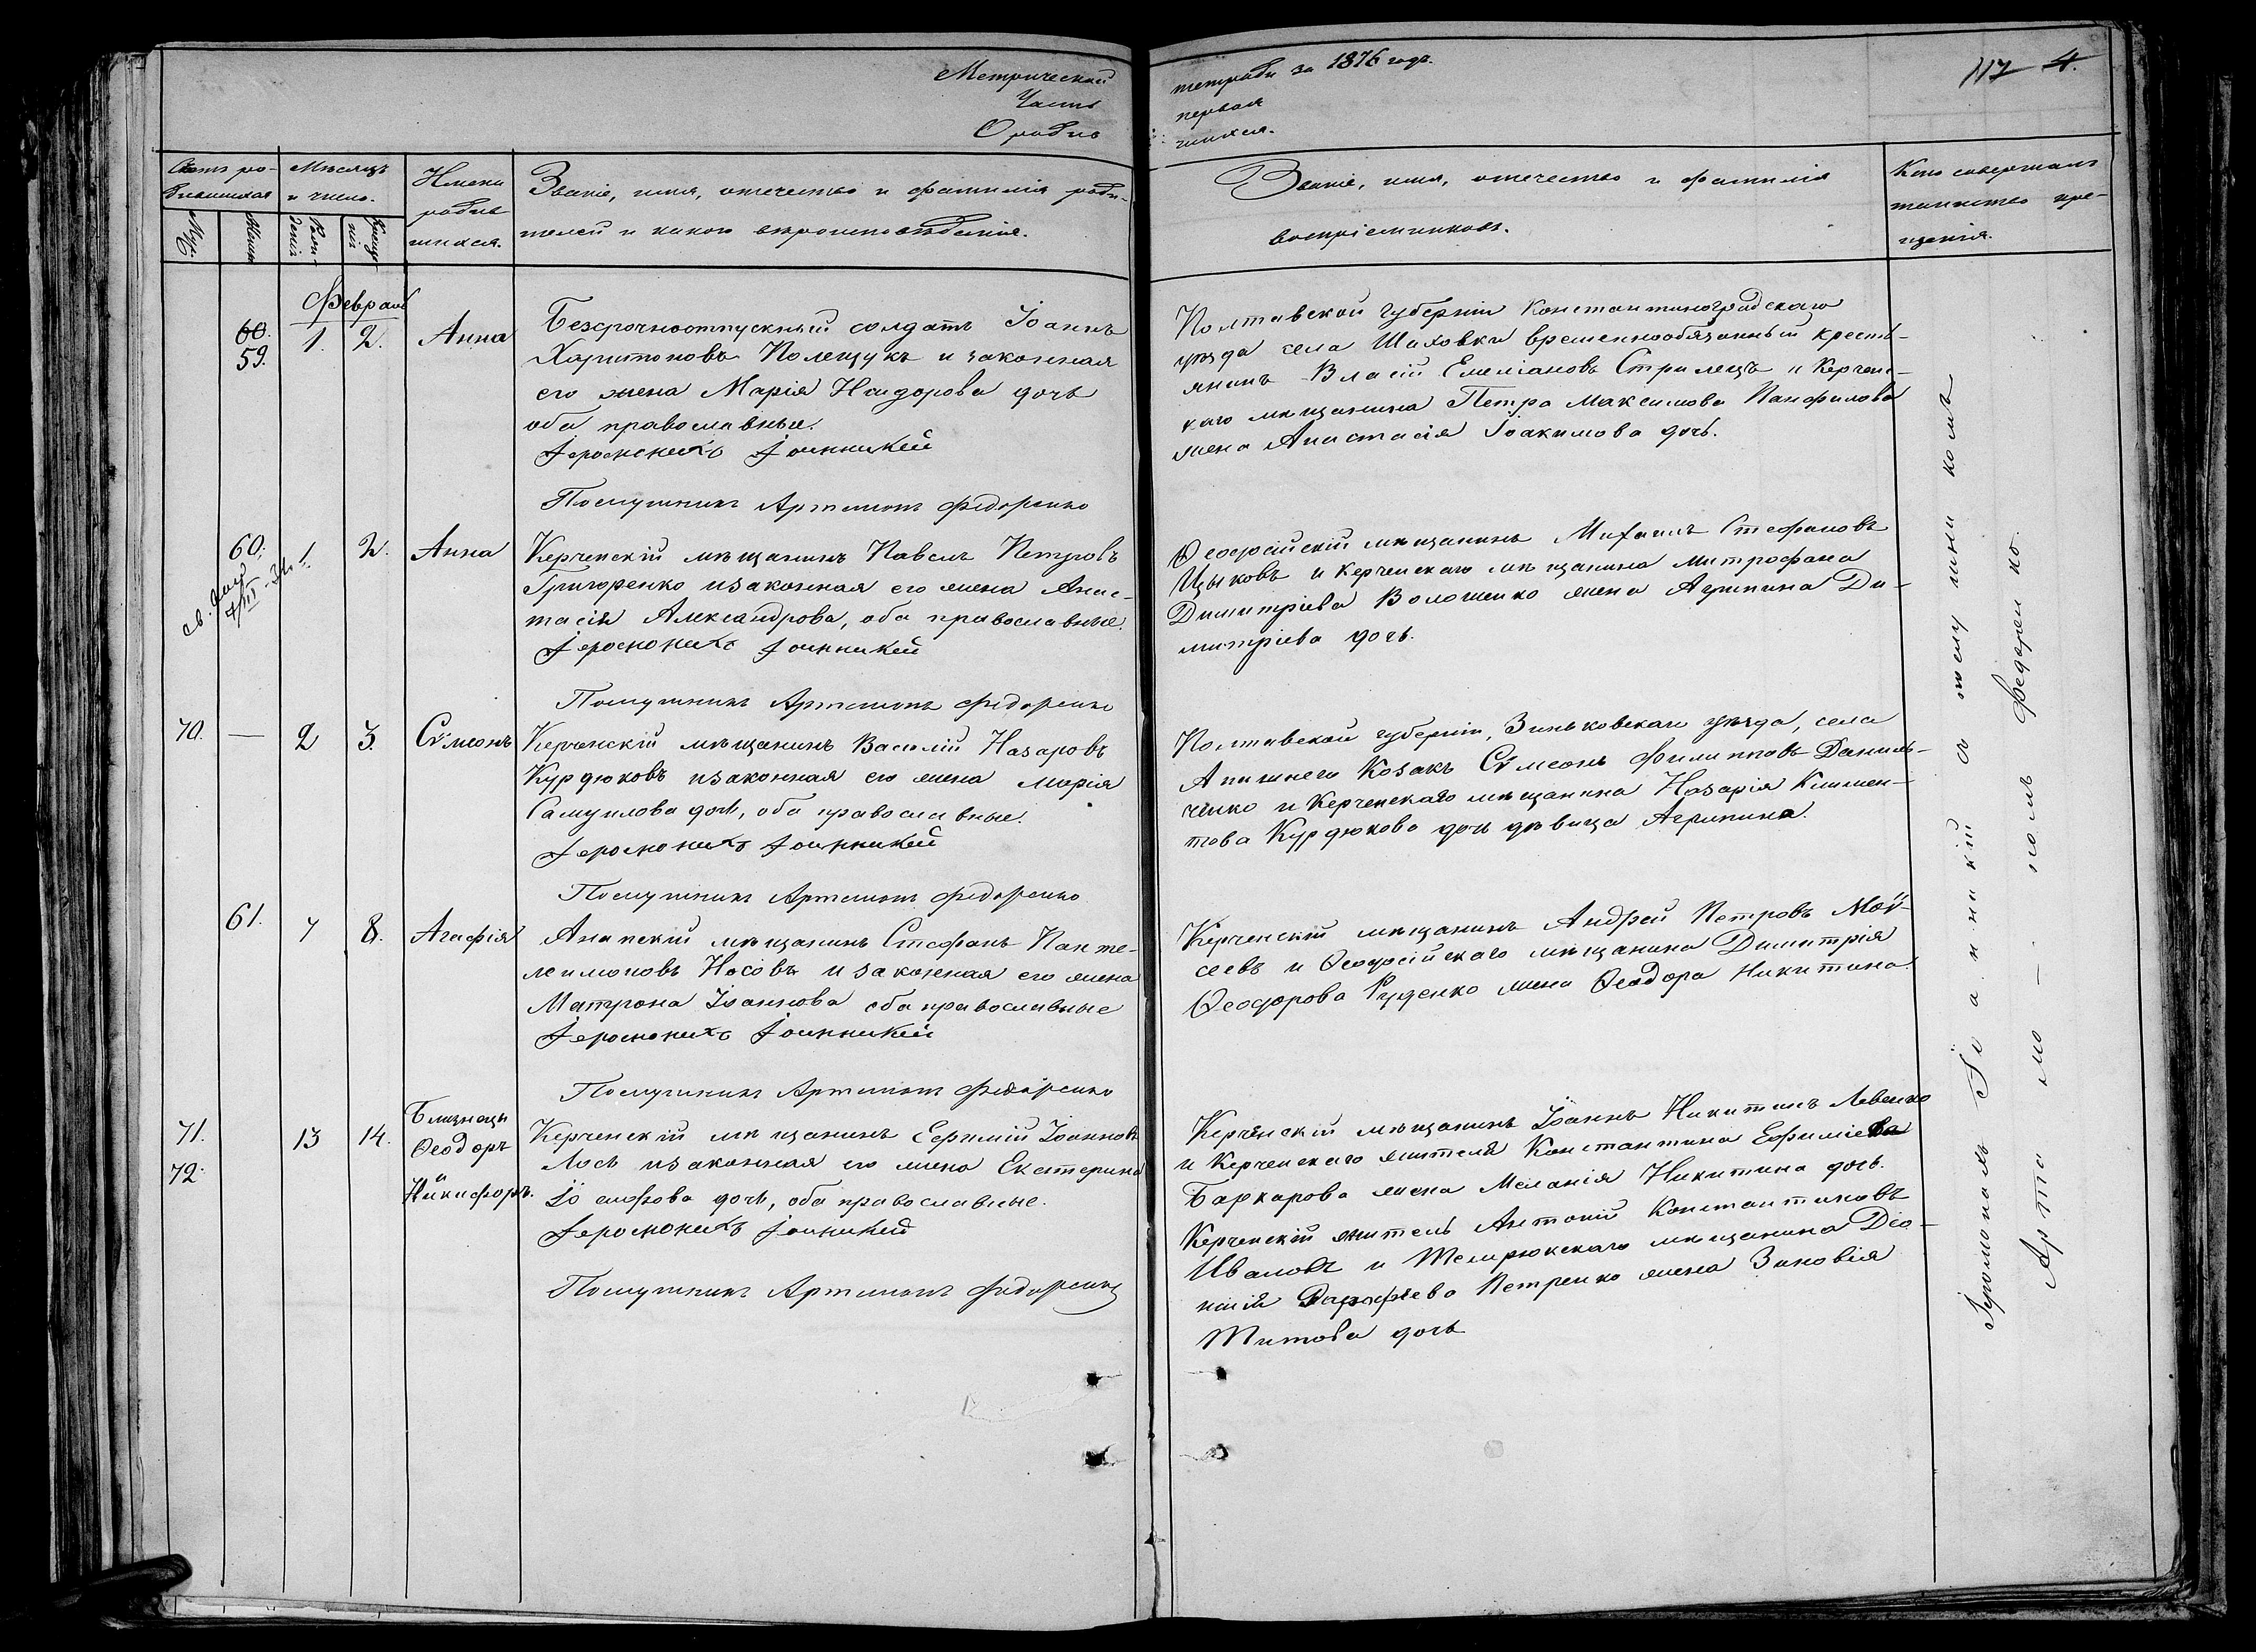 Метрической
Часть
О родив
тетради за 1876 годъ.
первая
шихся.
117 4.
Счетъ ро-
дившихся
Муж.
Женск.
Мѣсяцъ
и число.
Рож-
денія
Креще-
нія
Имена
родив
шихся.
Званіе, имя, отечество и фамилія роди-
телей и какого вѣроисповѣданія.
Званіе, имя, отечество и фамилія
воспріемниковъ.
Кто совершалъ
таинство кре-
щенія.
Февраль
60.
59.
1.
2.
Анна
Безсрочноотпускный солдатъ Іоаннъ
Харитоновъ Полещукъ и законная
его жена Марія Исидорова дочь
оба православные.
Іеромонахъ Іоанникій
Послушникъ Артемонъ Федоренко
Полтавской губерніи Константиноградскаго
уѣзда села Шаховки временнообязанный кресть-
янинъ Власій Емеліановъ Стрилецъ и Керченс-
каго мѣщанина Петра Максимова Панфилова
жена Анастасія Іоакимова дочь.
60.
св. выд.
1
2.
Анна
Керченскій мѣщанинъ Павелъ Петровъ
Григоренко и законная его жена Анас-
тасія Александрова, оба православные.
Іеромонахъ Іоанникій
Послушникъ Артемонъ Федоренко
Ѳеодосійскій мѣщанинъ Михаилъ Стефановъ
Цыковъ и Керченскаго мѣщанина Митрофана
Димитріева Волошенко жена Агрипина Ди-
митріева дочь.
70.
—
2
3.
Сѵмеонъ
Керченскій мѣщанинъ Василій Назаровъ
Курдюковъ и законная его жена Марія
Самуилова дочь, оба православные.
Іеромонахъ Іоанникій
Послушникъ Артемонъ Федоренко
Полтавской губерніи, Зиньковскаго уѣзда, села
Опишнего Козакъ Сѵмеонъ Филипповъ Даниль-
ченко и Керченскаго мѣщанина Назарія Климен-
това Курдюкова дочь дѣвица Агрипина.
61.
7
8.
Агафія
Анапскій мѣщанинъ Стефанъ Панте-
леимоновъ Носовъ и законная его жена
Матрона Іоаннова оба православные
Іеромонахъ Іоанникій
Послушникъ Артемонъ Федоренко
Керченскій мѣщанинъ Андрей Петровъ Моѵ-
сеевъ и Ѳеодосійскаго мѣщанина Димитрія
Ѳеодорова Руденко жена Ѳеодора Никитина.
71.
72.
13
14.
Близнецы
Ѳеодоръ
и
Никифоръ.
Керченскій мѣщанинъ Ефимій Іоанновъ
Лось и законная его жена Екатерина
Іосифова дочь, оба православные.
Іеромонахъ Іоанникій
Послушникъ Артемонъ Федоренко
Керченскій мѣщанинъ Іоаннъ Никитинъ Левенко
и Керченскаго жителя Константина Ефиміева
Баркарова жена Меланія Никитина дочь.
Керченскій житель Антоній Константиновъ
Ивановъ и Темрюкскаго мѣщанина Діо-
нисія Петренко жена Зиновія
Титова дочь
Іеромонахъ Іоанникій съ послушникомъ
Артемономъ Федоренко.